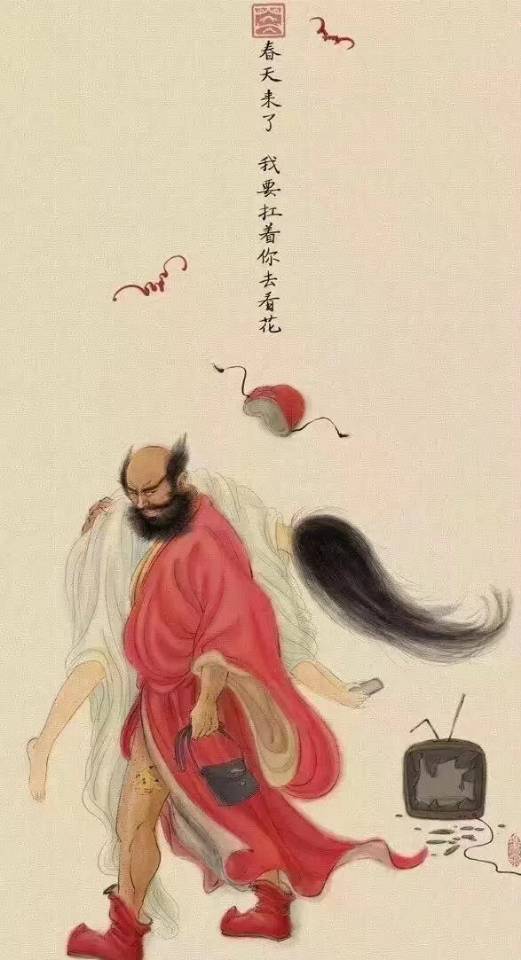 春天来了 我要扛着你去看花